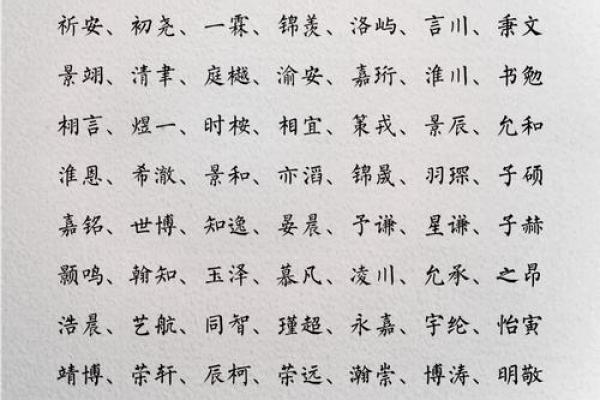 祈安、初尧、一霖、锦羡、洛屿、言川、秉文
景翊、清聿、庭樾、渝安、嘉珩、淮川、书勉
栩言、煜一、时桉、相宜、策戎、景辰、允和
淮恩、希澈、景和、亦滔、锦晟、羽琛、子硕
嘉铭、世博、知逸、晏晨、予谦、星谦、子赫
颢鸣、翰知、玉泽、慕凡、凌川、允承、之昂
浩晨、艺航、同智、瑾超、永嘉、宇纶、怡寅
靖博、荣轩、辰柯、荣远、瀚崇、博涛、明敬